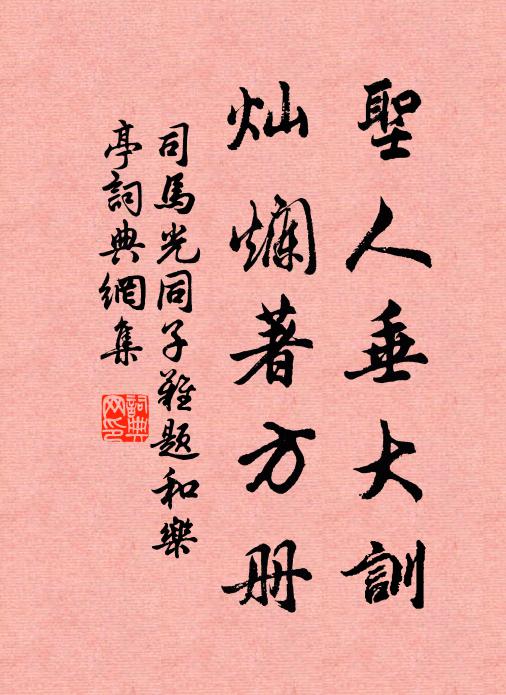 聖人垂大訓
灿爛著方册
司馬光同子難题和樂
亭詞典網集
詞典网印